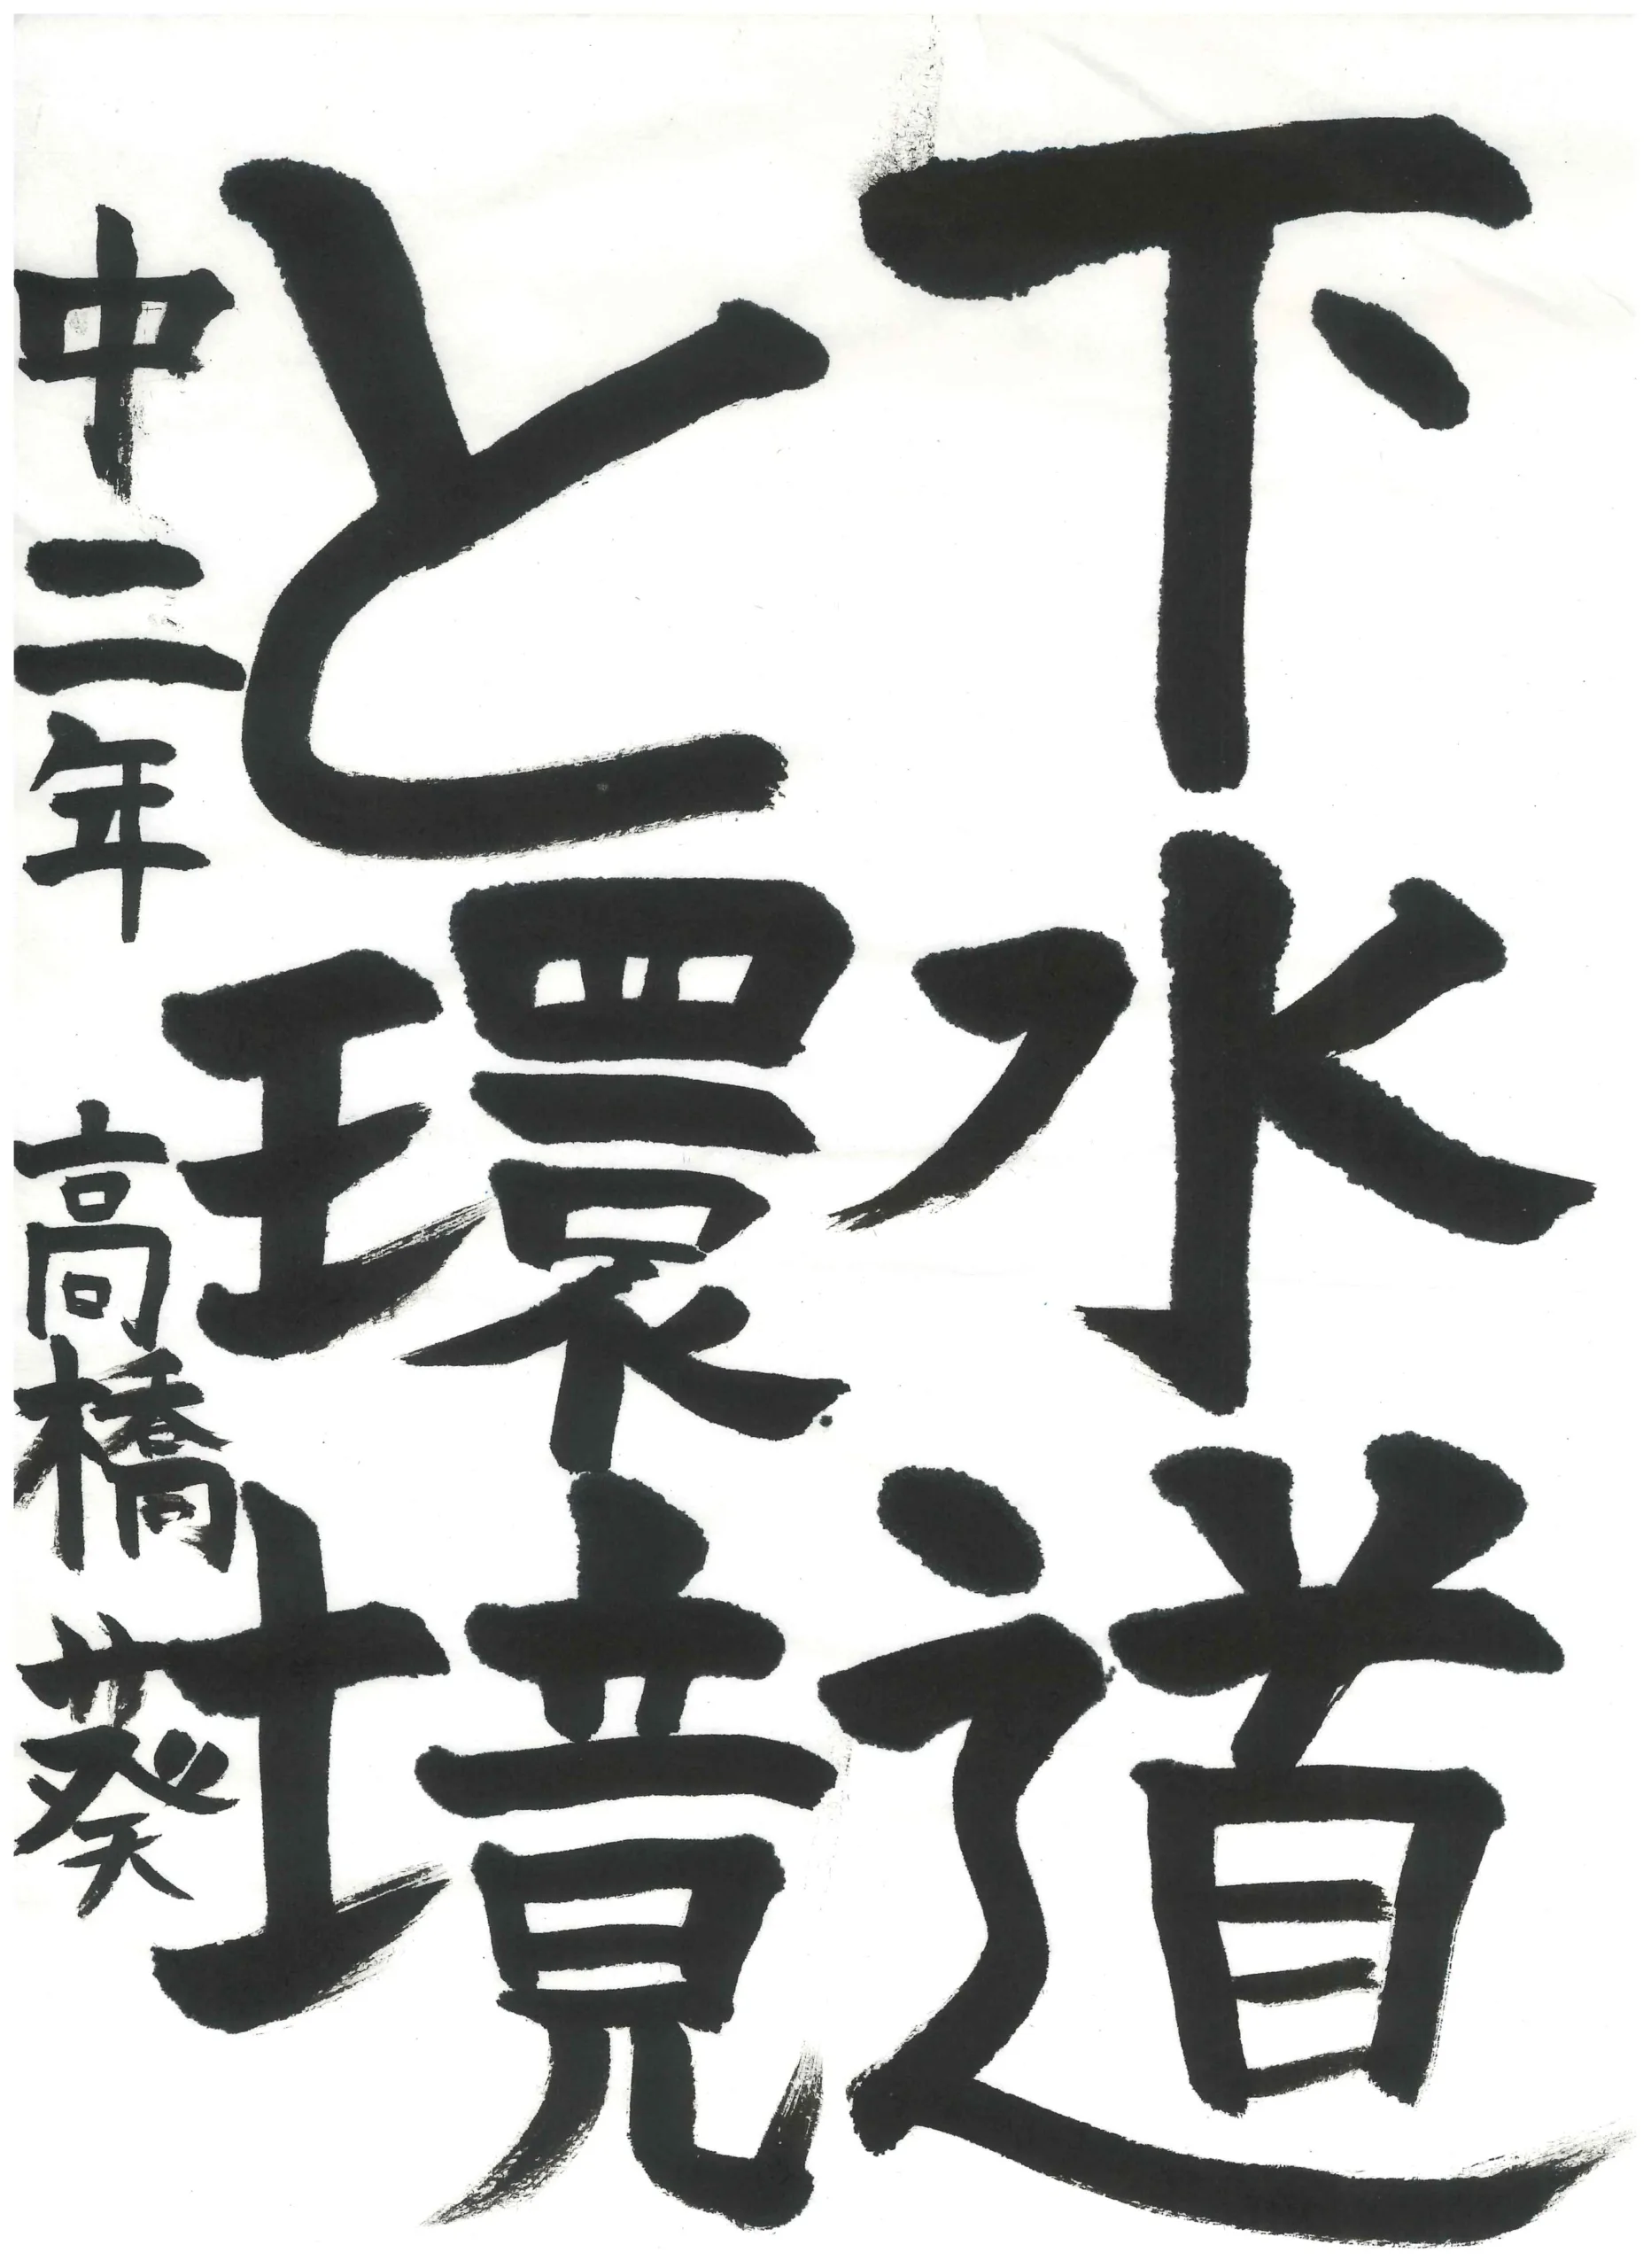 下水道
と環境
中二年 高橋葵